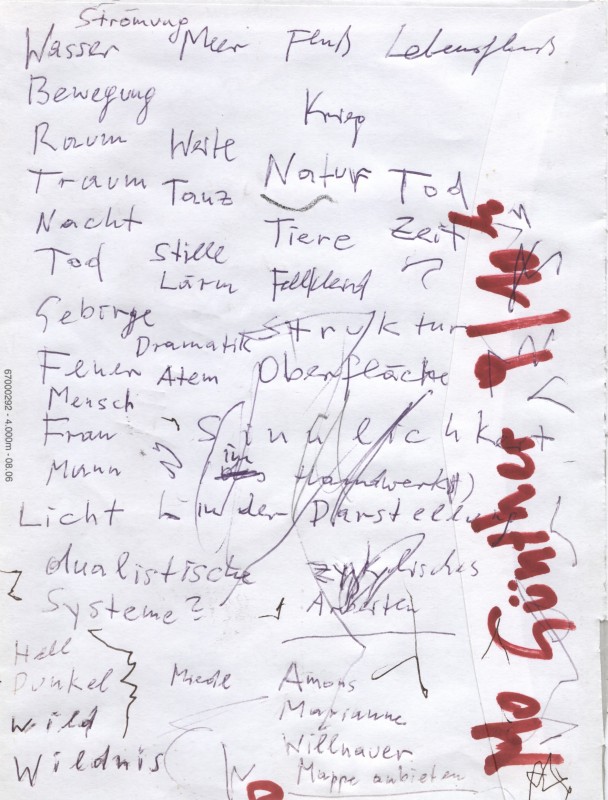 Strömung
Wasser Meer Fluß Lebensfluß
Bewegung
Krieg
Raum Weite
Traum Tanz Natur Tod
Nacht Tiere Zeit
Tod Stille
Lärm
Gebirge Struktur
Dramatik
Feuer Atem Oberfläche
Mensch
Frau Sinnlichkeit
Mann im Handwerk
Licht in der Darstellung
dualistische zyklisches
Systeme? Arbeiten
Hell
Dunkel Amons
wild Marianne
Willnauer
Wildnis Mappe anbieten
Günther
67000292 - 4.000m - 08.06